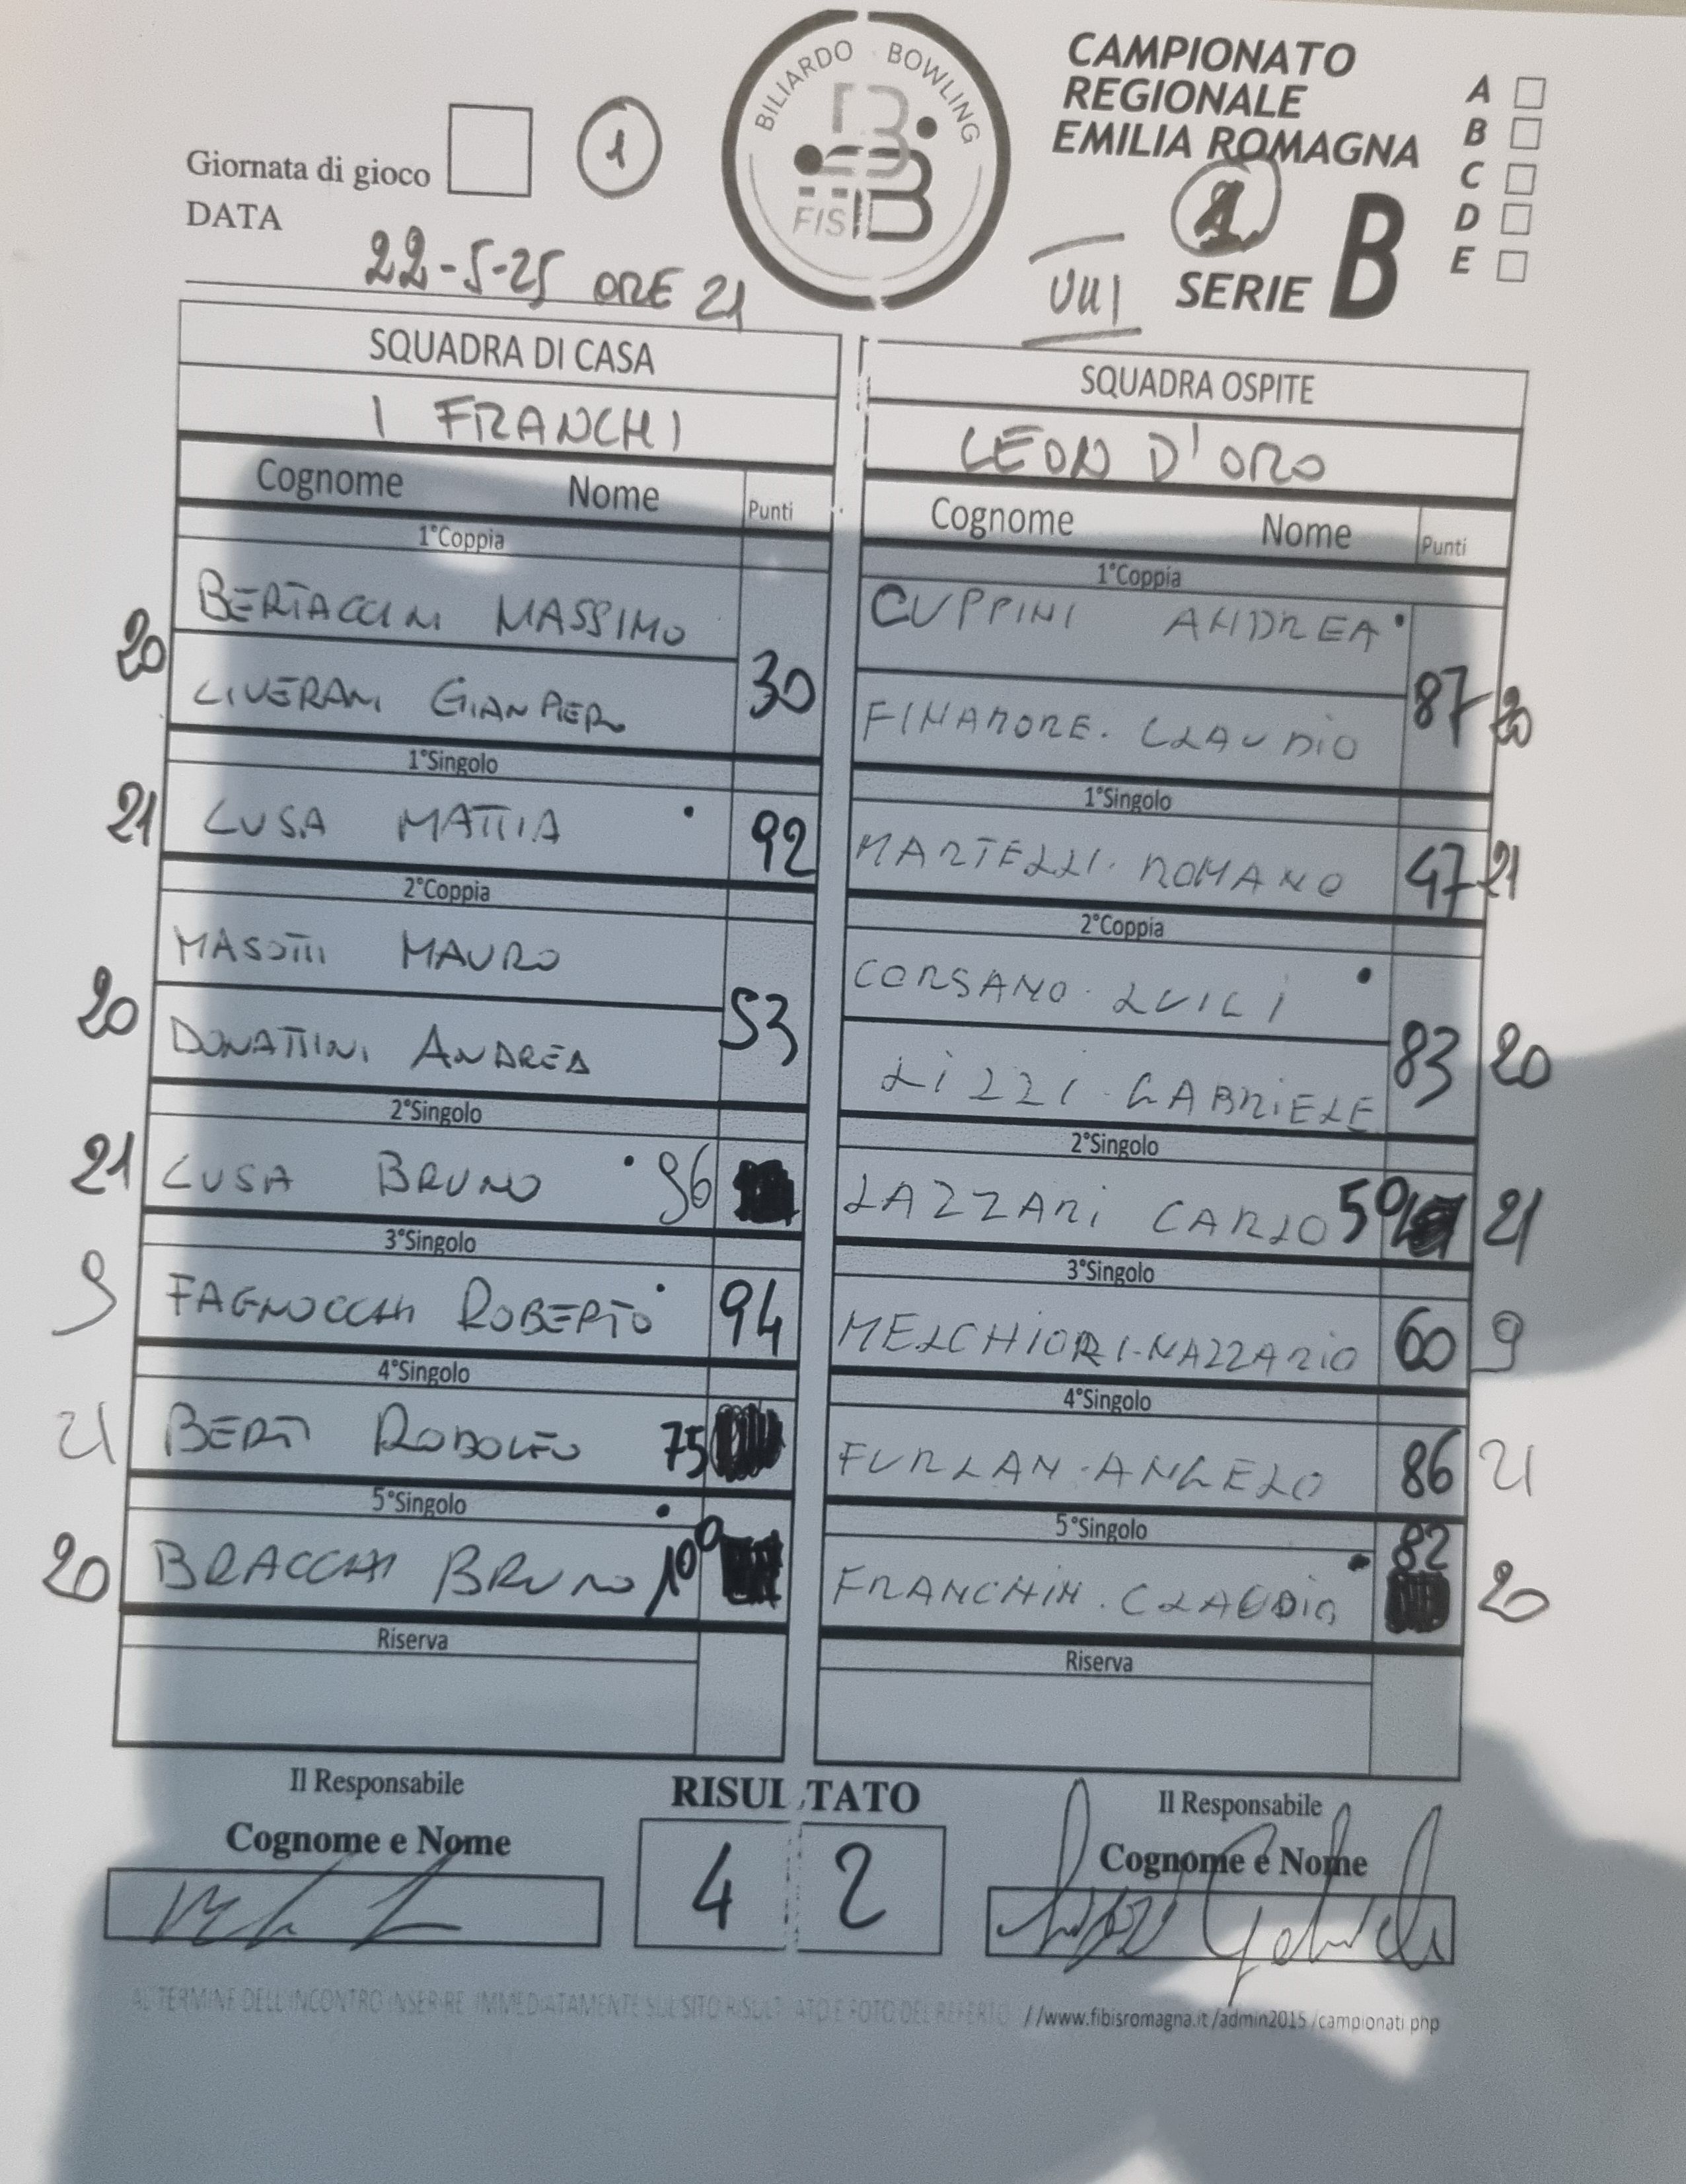 BILIARDO · BOWLING
FISBB
CAMPIONATO
REGIONALE
EMILIA ROMAGNA
A
B
C
D
E
Giornata di gioco
1
DATA
22-5-25 ORE 21
VIII
1
SERIE B
SQUADRA DI CASA
I FRANCHI
Cognome Nome Punti
1°Coppia
BERTACCINI MASSIMO
20 30
LIVERANI GIANPIER
1°Singolo
21 LUSA MATTIA 92
2°Coppia
MASOTTI MAURO
20 53
DONATTINI ANDREA
2°Singolo
21 LUSA BRUNO 96
3°Singolo
9 FAGNOCCHI ROBERTO 94
4°Singolo
21 BERTI RODOLFO 75
5°Singolo
20 BRACCHI BRUNO 100
Riserva
SQUADRA OSPITE
LEON D'ORO
Cognome Nome Punti
1°Coppia
CUPPINI ANDREA
87 20
FINAMORE. CLAUDIO
1°Singolo
MARTELLI. ROMANO 47 21
2°Coppia
CORSANO. LUIGI
83 20
LIZZI. GABRIELE
2°Singolo
LAZZARI CARLO 50 21
3°Singolo
MELCHIORRI-NAZZARIO 60 9
4°Singolo
FURLAN. ANGELO 86 21
5°Singolo
FRANCHIN. CLAUDIO 82 20
Riserva
Il Responsabile
Cognome e Nome
RISULTATO
4 2
Il Responsabile
Cognome e Nome
AL TERMINE DELL'INCONTRO INSERIRE IMMEDIATAMENTE SUL SITO RISULTATO E FOTO DEL REFERTO //www.fibisromagna.it/admin2015/campionati.php